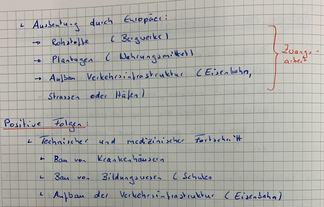 ↳ Ausbeutung durch Europäer:
→ Rohstoffe (Bergwerke)
→ Plantagen (Nahrungsmittel)
→ Aufbau Verkehrsinfrastruktur (Eisenbahn,
Strassen oder Häfen)
Zwangs-
arbeit
Positive Folgen:
↳ Technischer und medizinischer Fortschritt
↳ Bau von Krankenhäusern
↳ Bau von Bildungswesen (Schulen
↳ Aufbau der Verkehrsinfrastruktur (Eisenbahn)